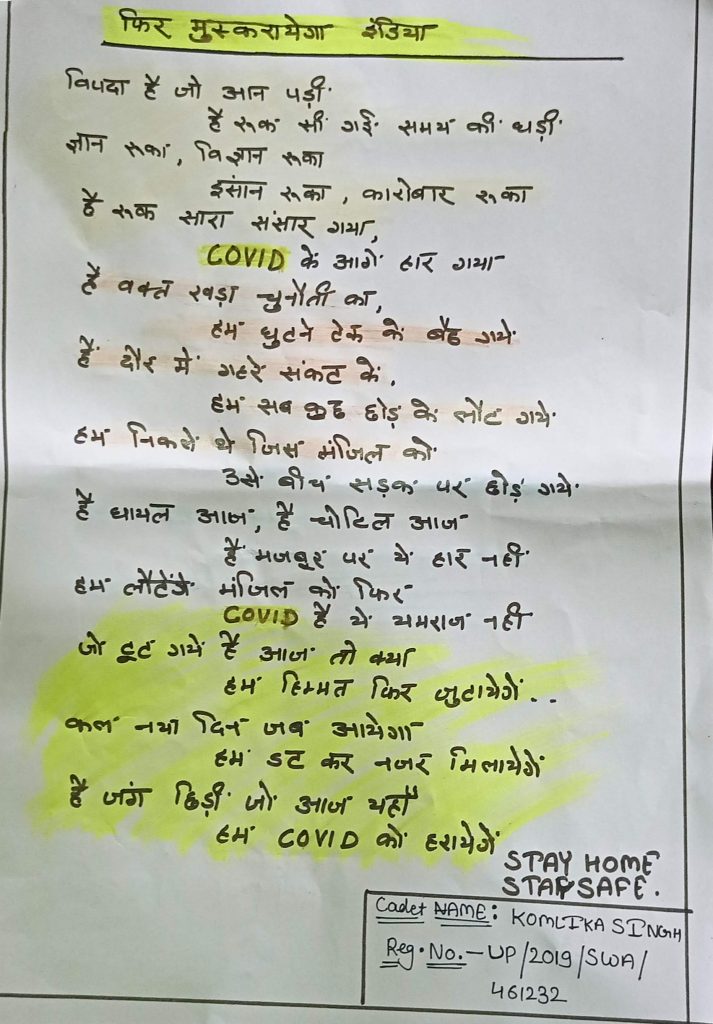 फिर मुस्करायेगा इंडिया
विपदा है जो आन पड़ी
है रूक सी गई समय की घड़ी
ज्ञान रूका, विज्ञान रूका
इंसान रूका, कारोबार रूका
है रूक सारा संसार गया,
COVID के आगे हार गया
है वक्त खड़ा चुनौती का,
हम घुटने टेक के बैठ गये
है दौर में गहरे संकट के,
हम सब कुछ छोड़ के लौट गये
हम निकले थे जिस मंजिल को
उसे बीच सड़क पर छोड़ गये
है घायल आज, है चोटिल आज
है मजबूर पर ये हार नही
हम लौटेंगे मंजिल को फिर
COVID है ये यमराज नही
जो टूट गये है आज तो क्या
हम हिम्मत फिर जुटायेगें..
कल नया दिन जब आयेगा
हम डट कर नजर मिलायेगें
है जंग छिड़ी जो आज यहाँ
हम COVID को हरायेगें
STAY HOME
STAY SAFE.
Cadet NAME: KOMLIKA SINGH
Reg. No. - UP/2019/SWA/
461232